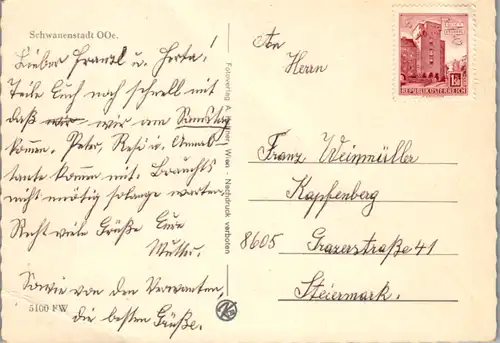 Schwanenstadt OOe.
Lieber Franzl u. Herta!
Teile Euch noch schnell mit
daß wir wir am Samstag
kommen. Peter, Resi u. Annal-
tante kommen mit. Braucht
nicht unnötig solange warten.
Recht viele Grüße Eure
Mutter.
Sowie von den Verwanten,
die besten Grüße.
5100 FW
Wien - Nachdruck verboten
1.50
REPUBLIK ÖSTERREICH
An
Herrn
Franz Weinmüller
Kapfenberg
8605 Grazerstraße 41
Steiermark.